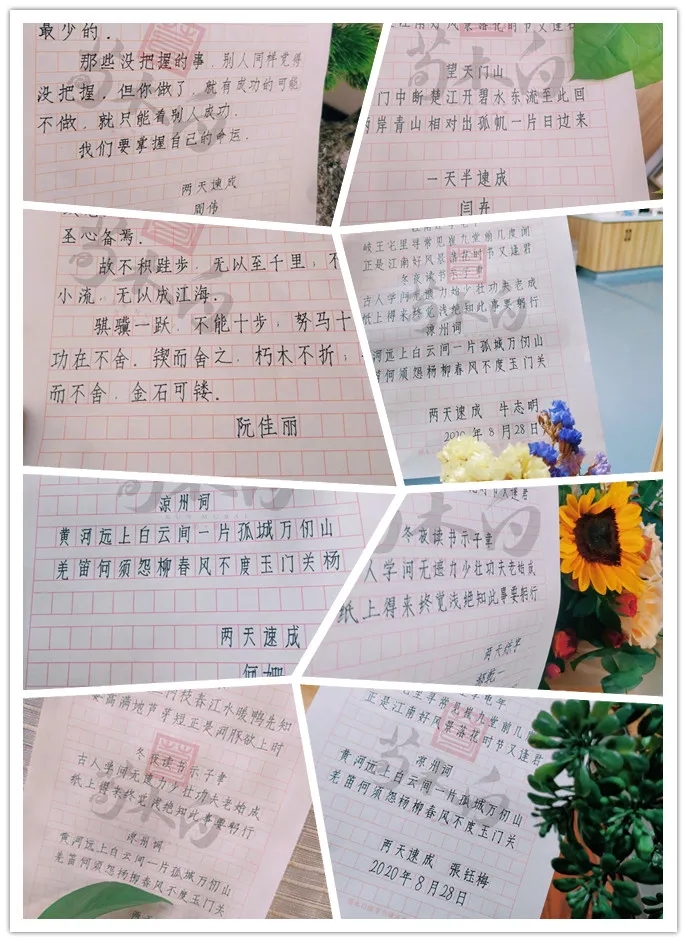 最少的．
那些没把握的事，别人同样觉得
没把握．但你做了，就有成功的可能
不做，就只能看别人成功．
我们要掌握自己的命运．
两天速成
周伟
江南好风景落花时节又逢君
望天门山
门中断楚江开碧水东流至此回
两岸青山相对出孤帆一片日边来
一天半速成
闫卉
圣心备焉．
故不积跬步，无以至千里；不
小流，无以成江海．
骐骥一跃，不能十步；驽马十
功在不舍．锲而舍之，朽木不折；
而不舍，金石可镂．
阮佳丽
岐王宅里寻常见崔九堂前几度闻
正是江南好风景落花时节又逢君
冬夜读书示子聿
古人学问无遗力少壮功夫老始成
纸上得来终觉浅绝知此事要躬行
凉州词
河远上白云间一片孤城万仞山
笛何须怨杨柳春风不度玉门关
两天速成 牛志明
2020年8月28日
凉州词
黄河远上白云间一片孤城万仞山
羌笛何须怨柳春风不度玉门关杨
两天速成
何姗
冬夜读书示子聿
人学问无遗力少壮功夫老始成
纸上得来终觉浅绝知此事要躬行
两天速成
枝春江水暖鸭先知
蒌蒿满地芦芽短正是河豚欲上时
冬夜读书示子聿
古人学问无遗力少壮功夫老始成
纸上得来终觉浅绝知此事要躬行
凉州词
黄河远上白云间一片孤城万仞山
羌笛何须怨杨柳春风不度玉门关
宅里寻常见崔九堂前几度
正是江南好风景落花时节又逢君
凉州词
黄河远上白云间一片孤城万仞山
羌笛何须怨杨柳春风不度玉门关
两天速成 張钰梅
2020年8月28日